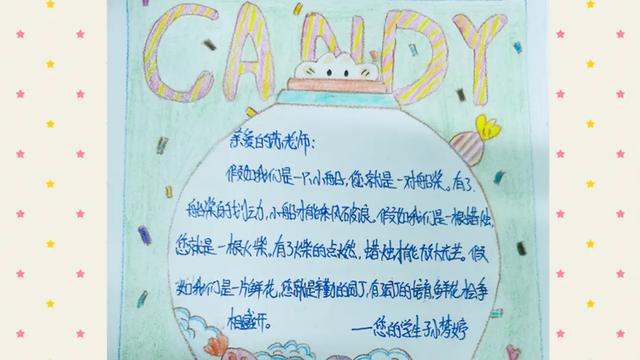 CANDY
亲爱的芮老师:
假如我们是一只小船,您就是一对船桨。有了
船桨的划动力,小船才能乘风破浪。假如我们是一根蜡烛,
您就是一根火柴。有了火柴的点燃,蜡烛才能放光芒。假
如我们是一片鲜花,您就是辛勤的园丁,有园丁的培育,鲜花
相盛开。
——您的学生孙梦婷